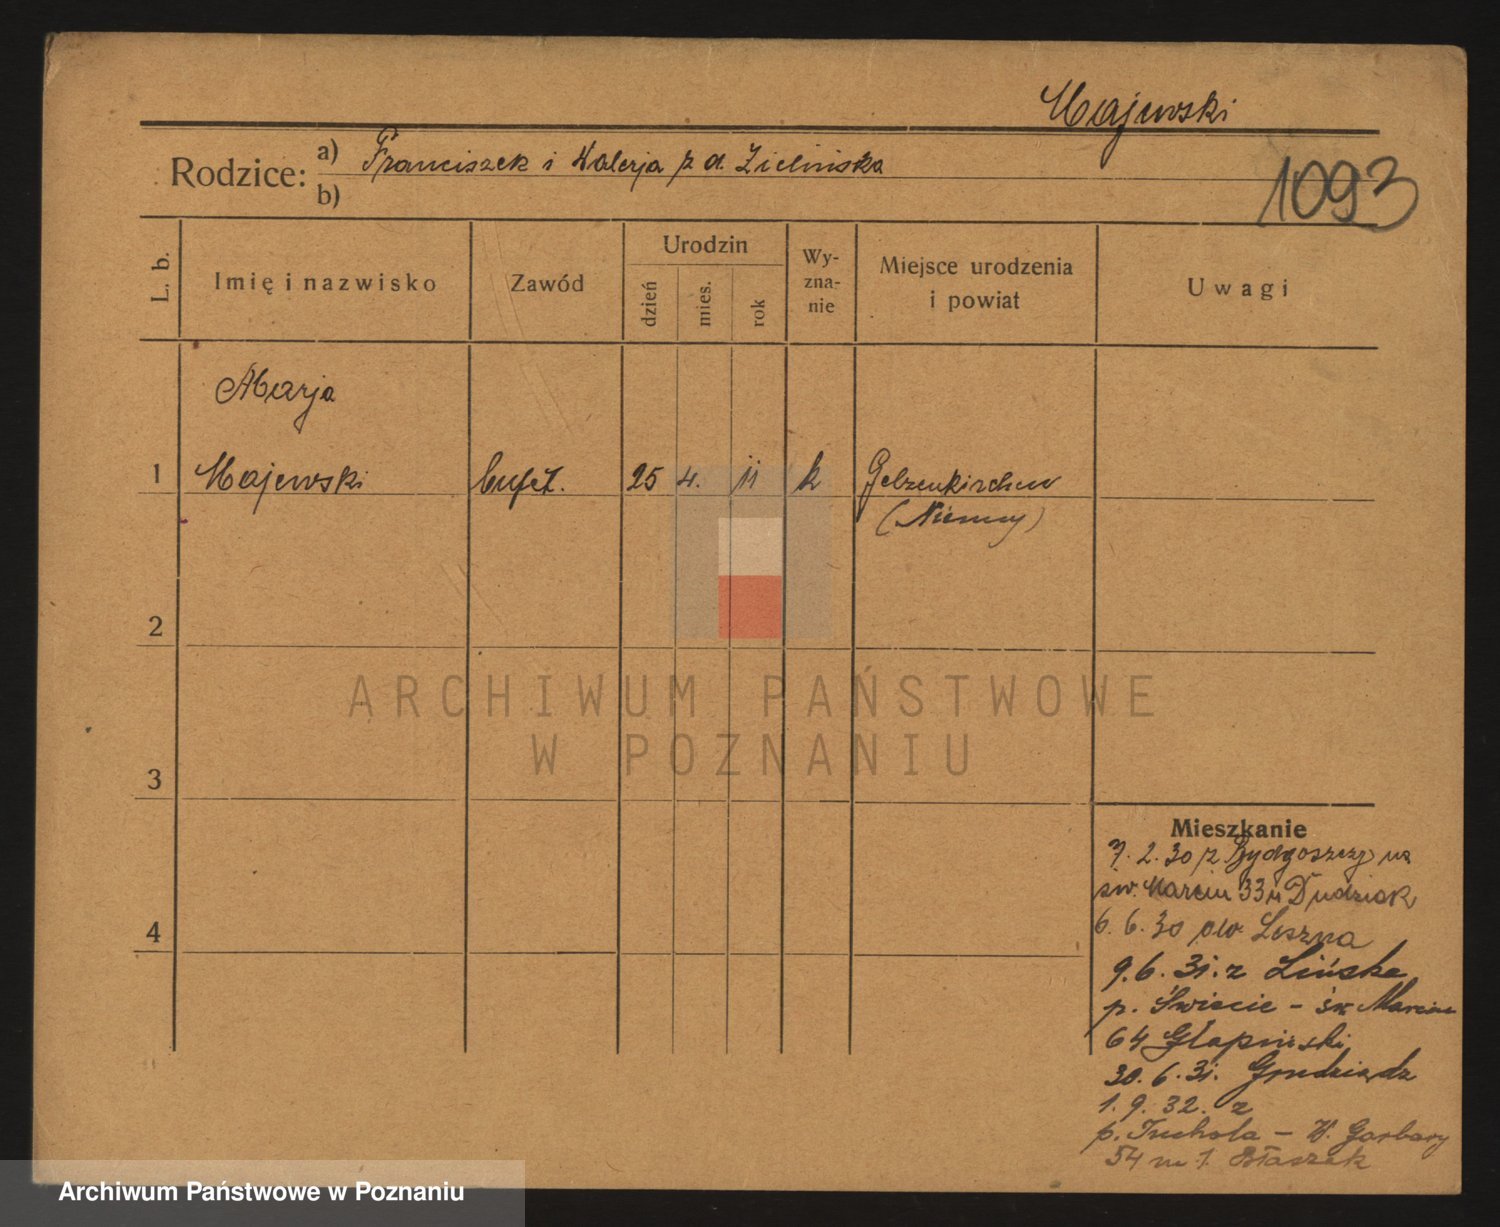 Majewski
Rodzice: a) Franciszek i Walerja z d. Zielińska
b)
1093
L. b.
Imię i nazwisko
Zawód
Urodzin
dzień
mies.
rok
Wy-
zna-
nie
Miejsce urodzenia
i powiat
Uwagi
Marja
1 Majewski bufet. 25 4. 11 k Gelzenkirchen
(Niemcy)
2
3
4
ARCHIWUM PAŃSTWOWE
W POZNANIU
Mieszkanie
7.2.30 z Bydgoszczy na
św. Marcin 33 u Dudziak
6.6.30 pow. Leszna
9.6.31. z Lińska
p. Świecie - św Marcin
64 Glapiński
30.6.31. Grudziądz
1.9.32. z
p. Tuchola - W. Garbary
54 m 1. Błaszak
Archiwum Państwowe w Poznaniu